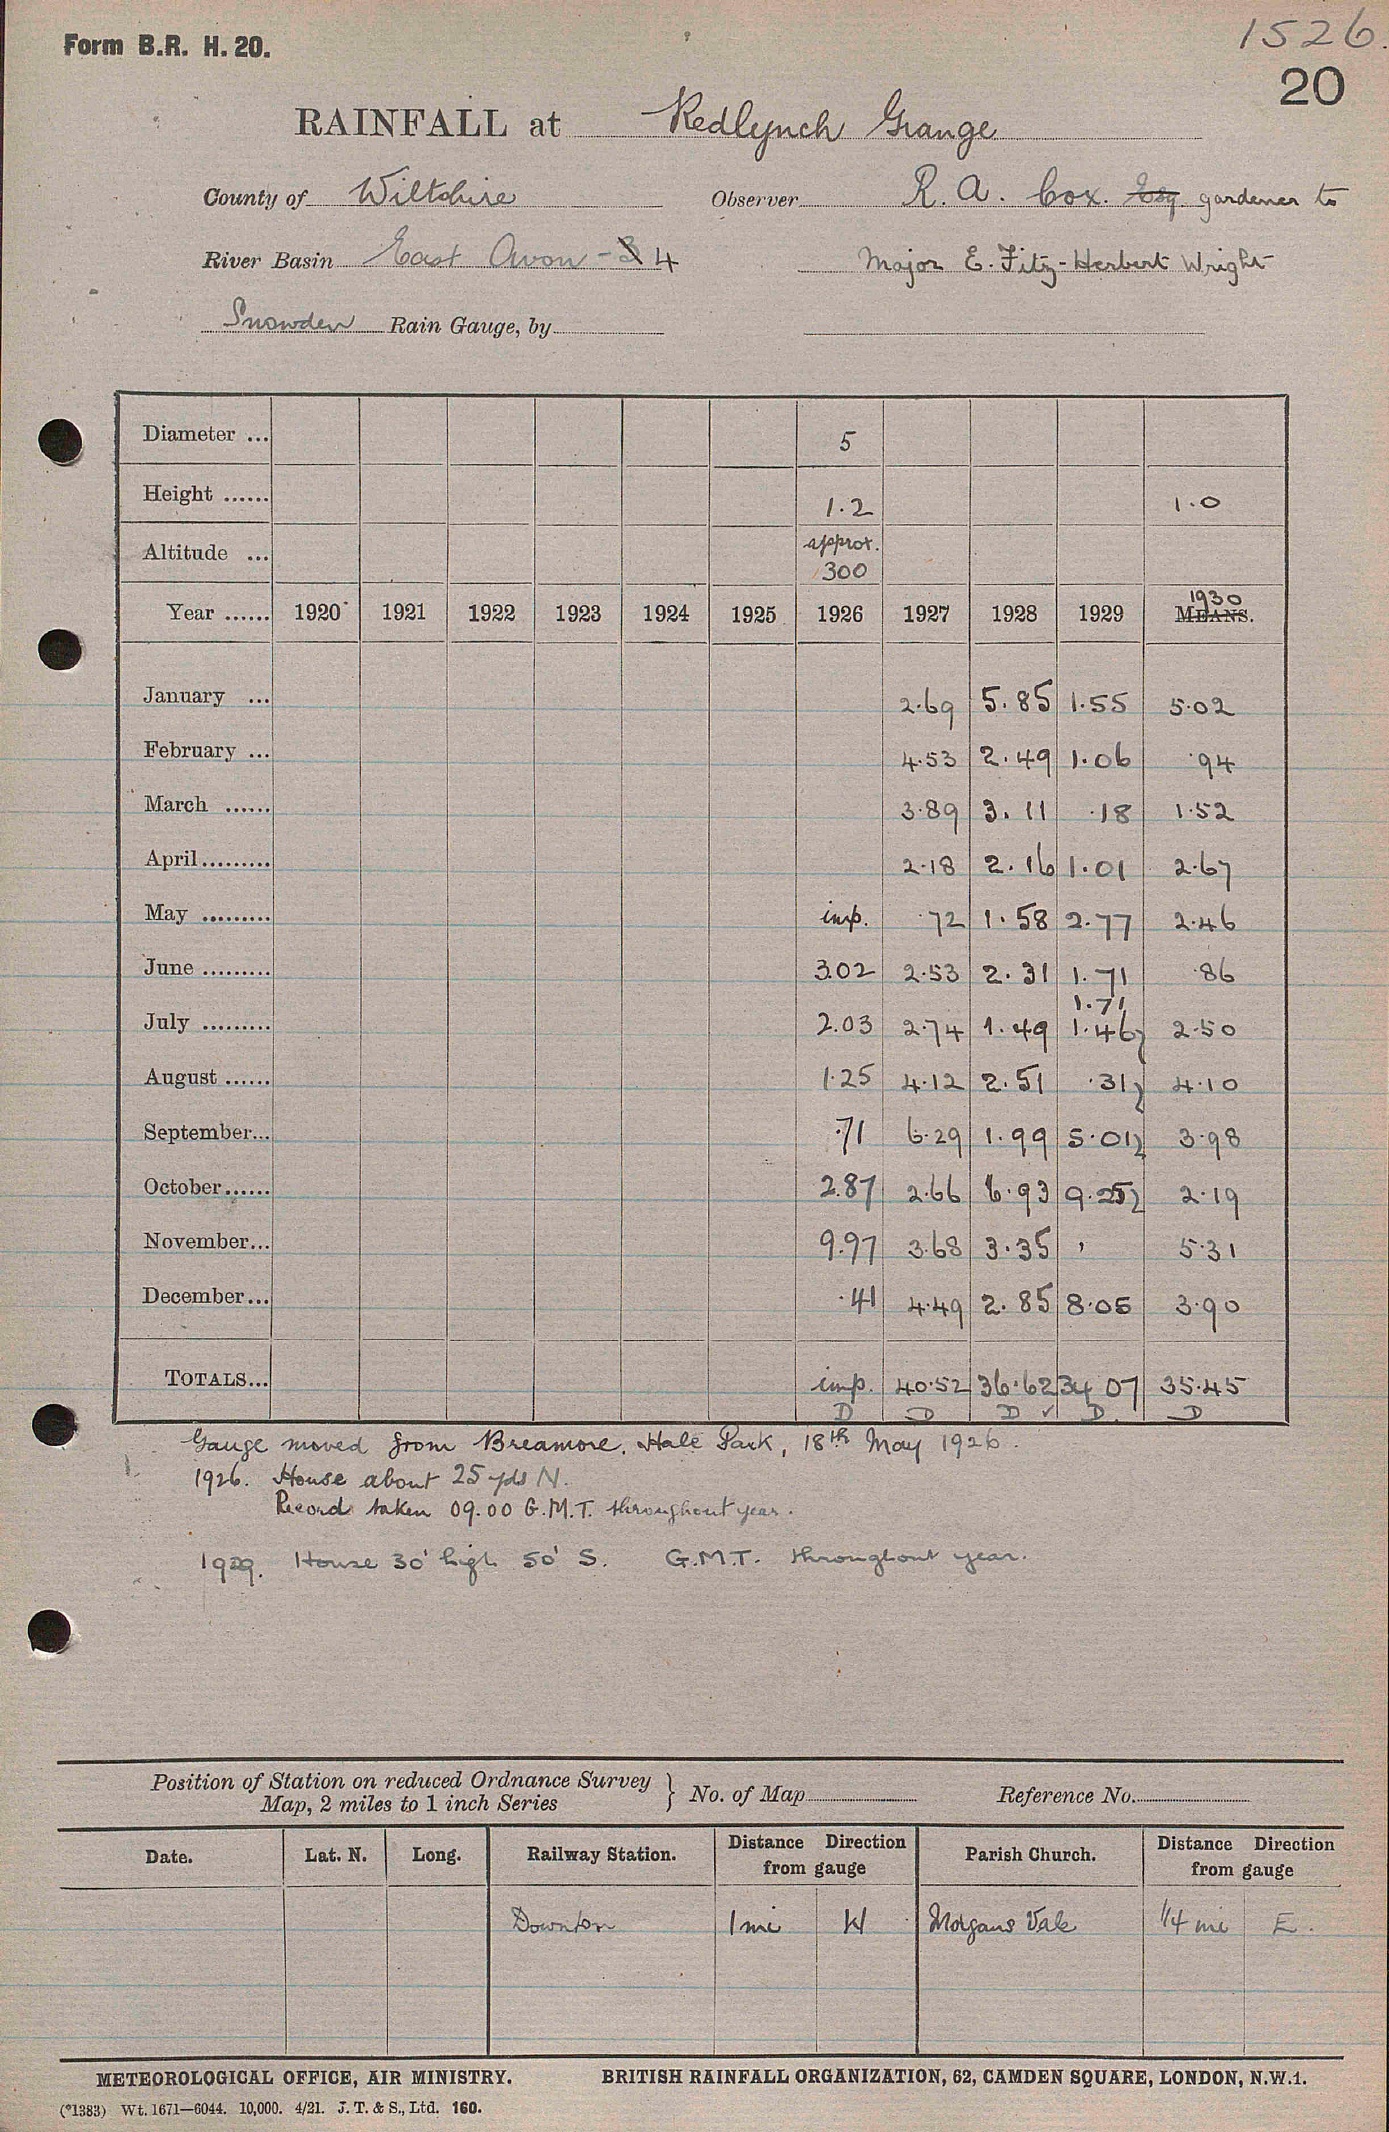 1526.
Form B.R. H. 20.
20
RAINFALL at Redlynch Grange
County of Wiltshire Observer R. A. Cox. Esq gardener to
River Basin East Avon - 3 4 Major E. Fitz-Herbert Wright
Snowden Rain Gauge, by
Diameter ... 5
Height ...... 1.2 1.0
Altitude ... approx. 300
Year ...... 1920 1921 1922 1923 1924 1925 1926 1927 1928 1929 MEANS. 1930
January ... 2.69 5.85 1.55 5.02
February ... 4.53 2.49 1.06 .94
March ...... 3.89 3.11 .18 1.52
April......... 2.18 2.16 1.01 2.67
May ......... imp. .72 1.58 2.77 2.46
June ......... 3.02 2.53 2.31 1.71 .86
1.71
July ......... 2.03 2.74 1.49 1.46} 2.50
August ...... 1.25 4.12 2.51 .31} 4.10
September... .71 6.29 1.99 5.01} 3.98
October...... 2.87 2.66 6.93 9.25} 2.19
November... 9.97 3.68 3.35 , 5.31
December... .41 4.49 2.85 8.05 3.90
TOTALS... imp. 40.52 36.62 34 07 35.45
D D D ✓ D. D
Gauge moved from Breamore, Hale Park, 18th May 1926.
1926. House about 25 yds N.
Record taken 09.00 G.M.T. throughout year.
1929. House 30' high 50' S. G.M.T. throughout year.
Position of Station on reduced Ordnance Survey
Map, 2 miles to 1 inch Series } No. of Map Reference No.
Date. Lat. N. Long. Railway Station. Distance Direction from gauge Parish Church. Distance Direction from gauge
Downton 1 mi W Morgans Vale 1/4 mi E.
METEOROLOGICAL OFFICE, AIR MINISTRY. BRITISH RAINFALL ORGANIZATION, 62, CAMDEN SQUARE, LONDON, N.W.1.
(*1383) Wt. 1671—6044. 10,000. 4/21. J. T. & S., Ltd. 160.